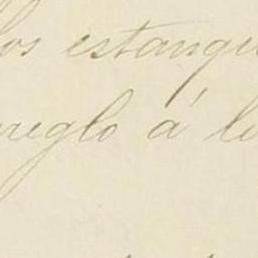 los estanqu
arreglo á l